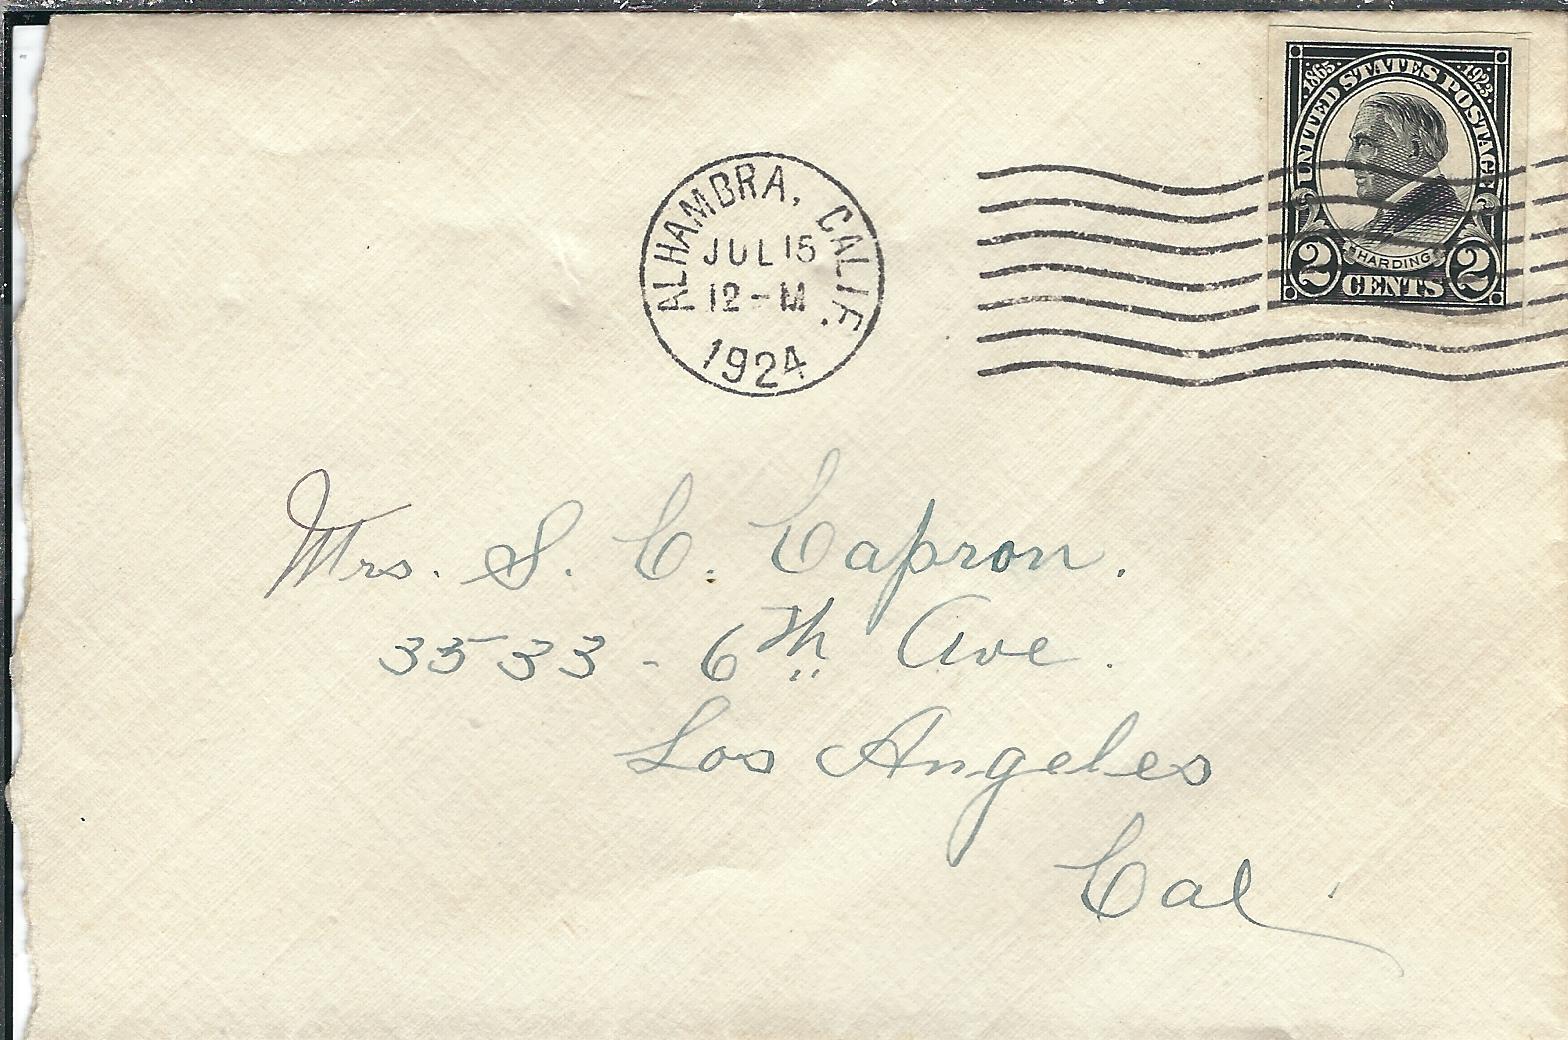 1865 UNITED STATES POSTAGE 1923
HARDING
2 CENTS 2
ALHAMBRA, CALIF.
JUL 15
12-M
1924
Mrs. S. C. Capron.
3533 - 6th Ave.
Los Angeles
Cal.